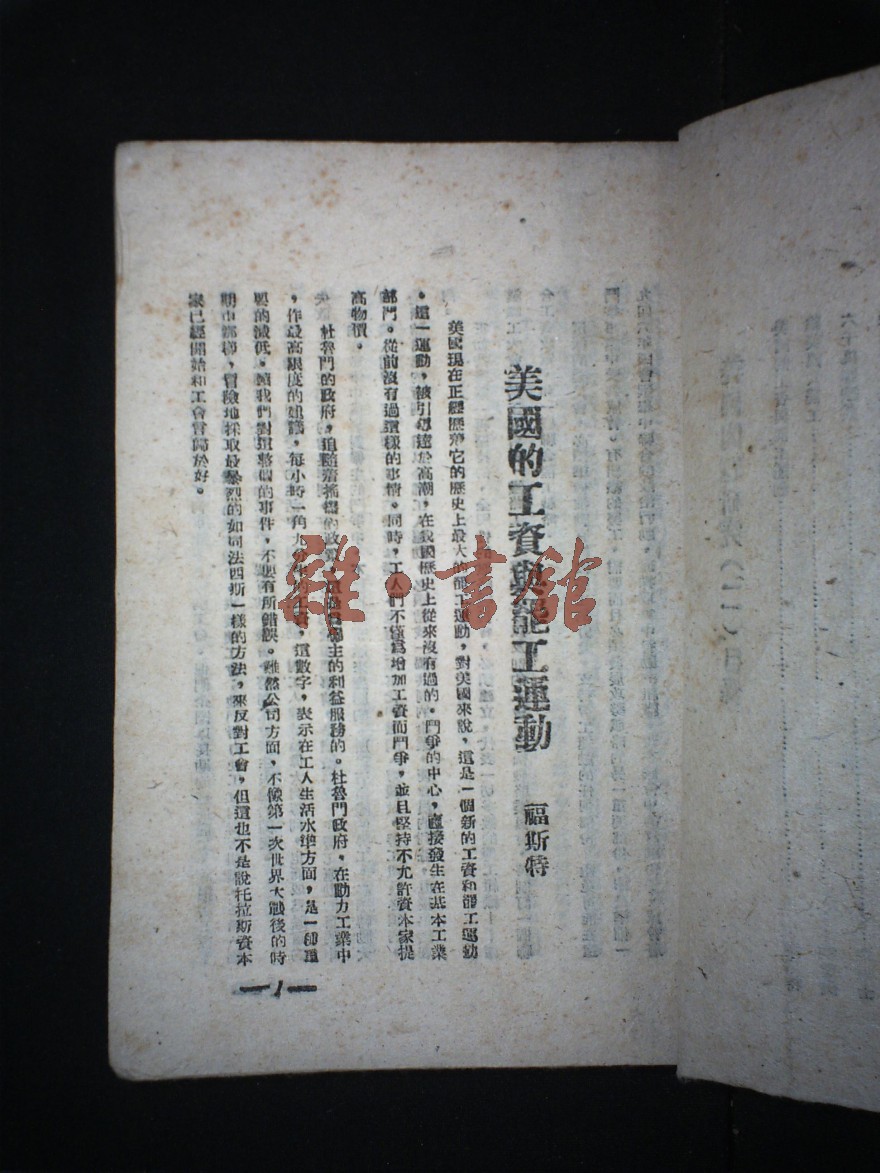 美國的工資與罷工運動
福斯特
美國現在正經歷着它的歷史上最大的罷工運動，對美國來說，這是一個新的工資和罷工運動
。這一運動，被引導達於高潮，在我國歷史上從來沒有過的。鬥爭的中心，直接發生在基本工業
部門。從前沒有過這樣的事情。同時，工人們不僅為增加工資而鬥爭，並且堅持不允許資本家提
高物價。
杜魯門的政府，追隨着 的政策，是 主的利益服務的。杜魯門政府，在動力工業中
，作最高限度的建議，每小時一角九分半的工資，這數字，表示在工人生活水準方面，是一種重
的減低。讓我們對這整個的事件，不要有所錯誤。雖然公司方面，不像第一次世界大戰後的時
期中那樣，冒險地採取最暴烈的如同法西斯一樣的方法，來反對工會，但這也不是說托拉斯資本
家已經開始和工會言歸於好。
1
雜·書館